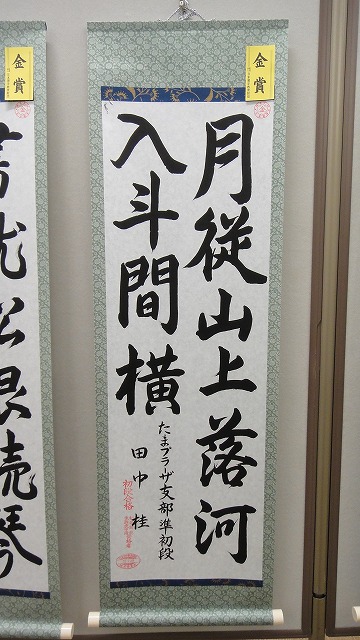 金賞
月従山上落河
入斗間横
たまプラーザ支部準初段
田中桂
初段合格
金賞